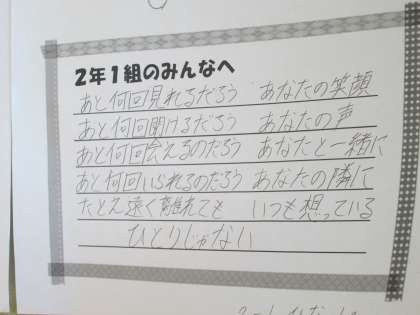 2年1組のみんなへ
あと何回見れるだろう あなたの笑顔
あと何回聞けるだろう あなたの声
あと何回会えるのだろう あなたと一緒に
あと何回いられるのだろう あなたの隣に
たとえ遠く離れても いつも想っている
ひとりじゃない